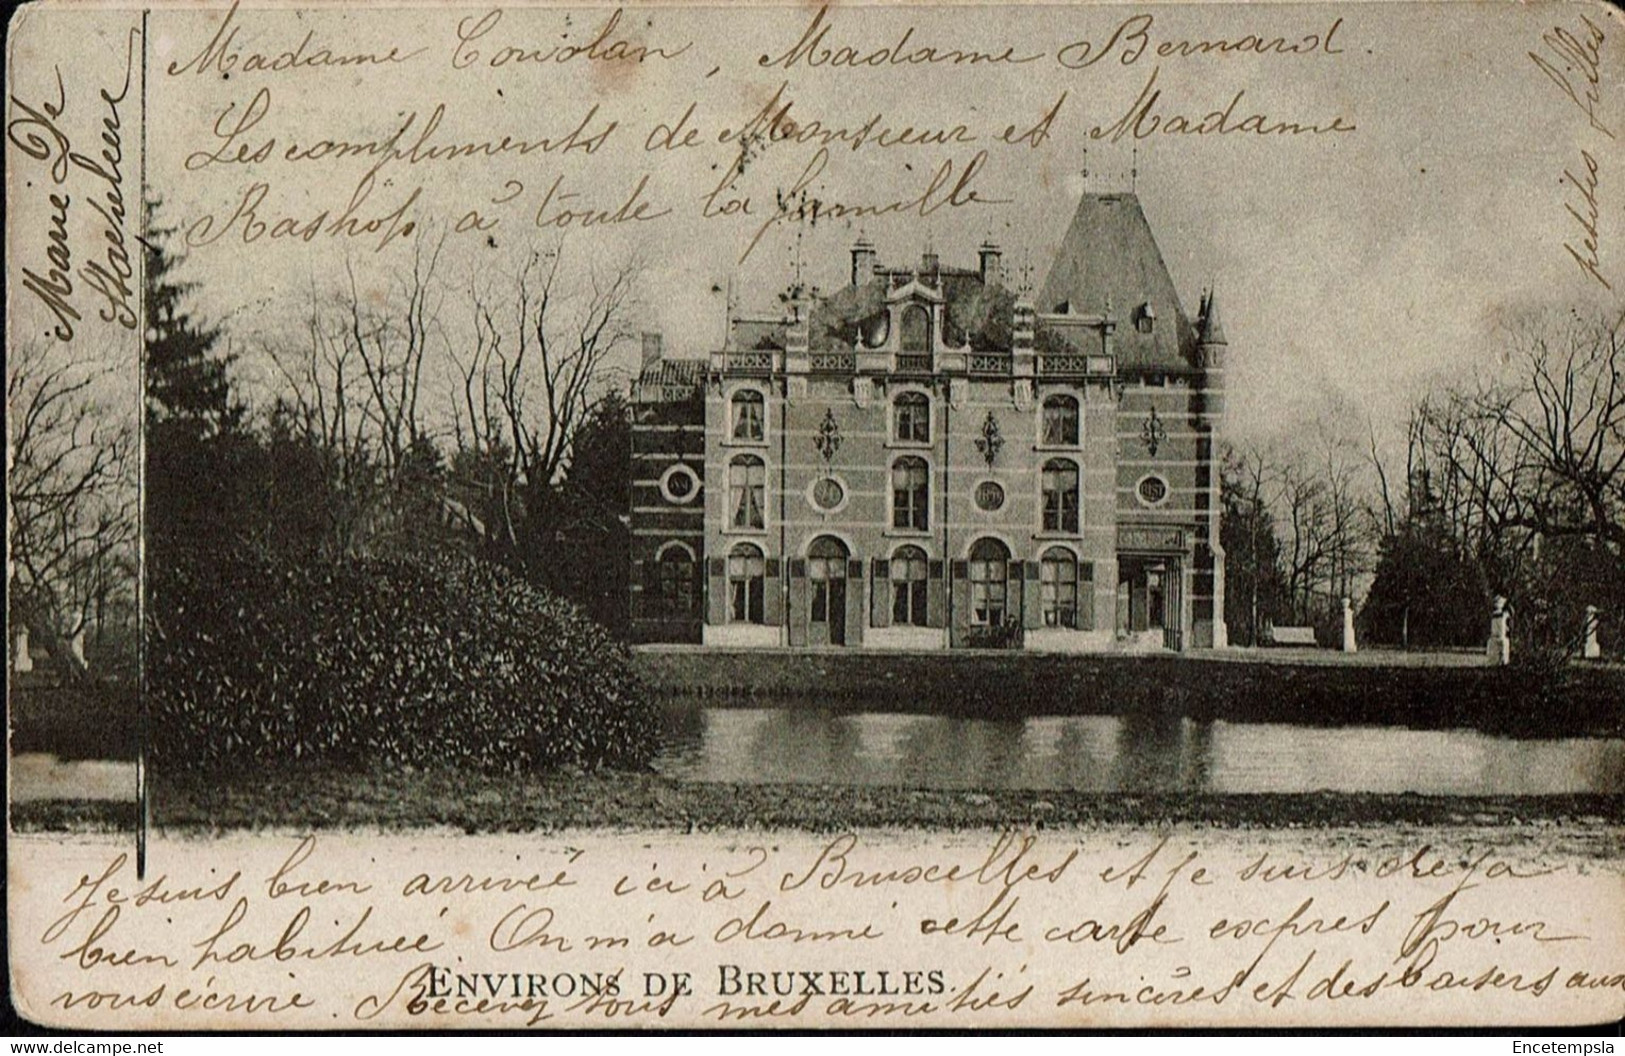 Madame Couolan, Madame Bernard.
Les compliments de Monsieur et Madame
Rashop à toute la famille
Marie De
Staeheliere
Je suis bien arrivée ici à Bruxelles et je suis deja
bien habituée On m'a donné cette carte exprès pour
vous écrire. Recevez tous mes amitiés sincères et des baisers aux
petites filles.
ENVIRONS DE BRUXELLES.
www.delcampe.net
Encetempsla